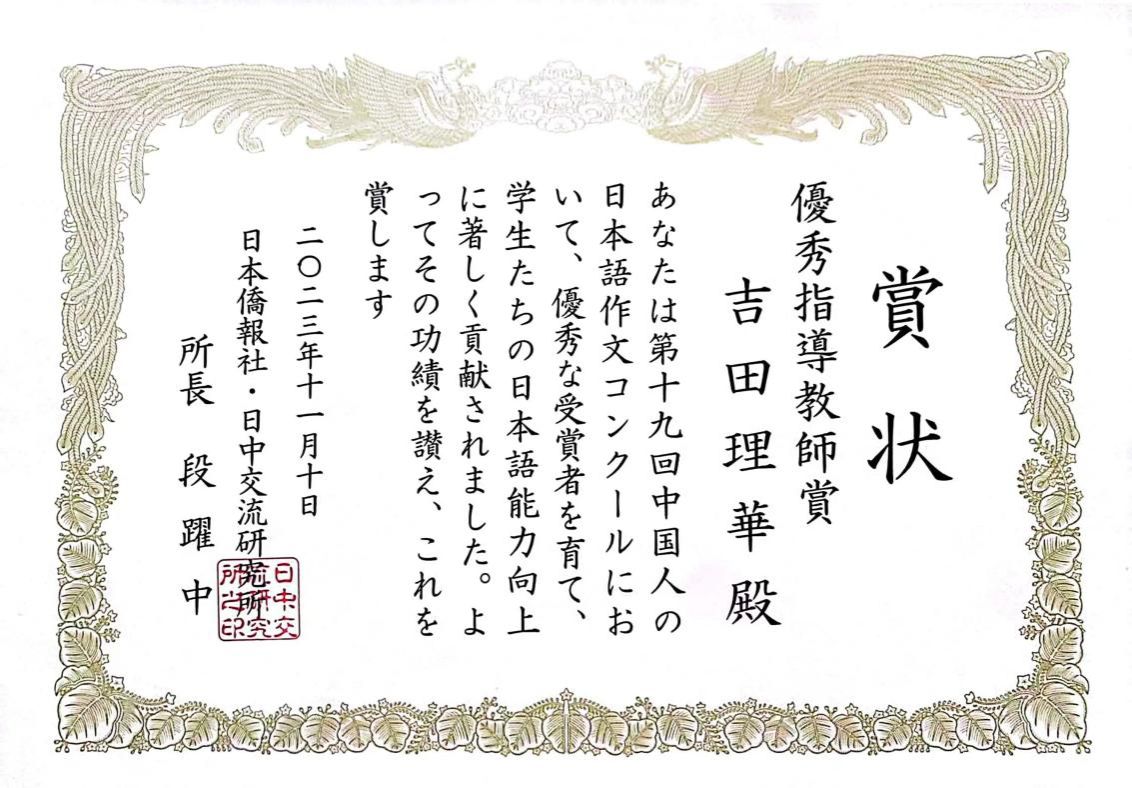 賞状
優秀指導教師賞
吉田理華殿
あなたは第十九回中国人の
日本語作文コンクールにお
いて、優秀な受賞者を育て、
学生たちの日本語能力向上
に著しく貢献されました。よ
ってその功績を讃え、これを
賞します
二〇二三年十一月十日
日本僑報社・日中交流研究所
所長 段躍中
日中交
流研究
所之印